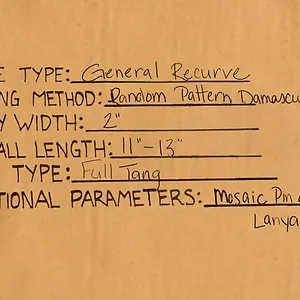 E TYPE: General Recurve
NG METHOD: Random Pattern Damascu
Y WIDTH: 2"
ALL LENGTH: 11"-13"
TYPE: Full Tang
TIONAL PARAMETERS: Mosaic Pin
Lanya